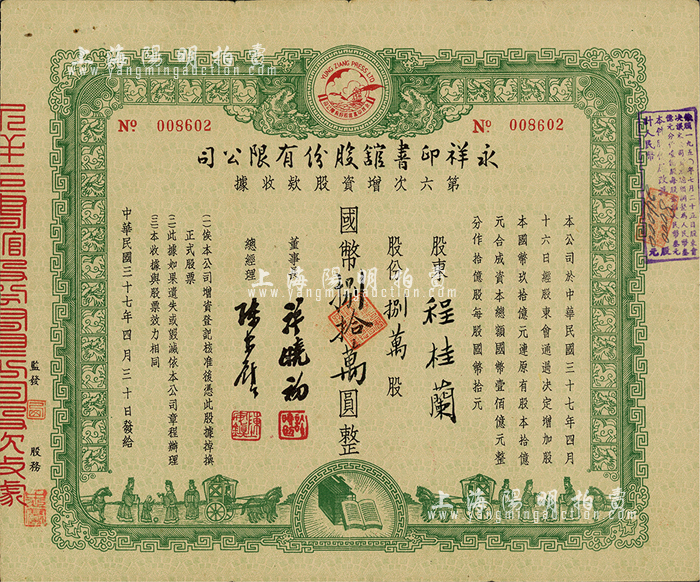 上海陽明拍賣
www.yangmingauction.com
YUNG ZIANG PRESS, LTD
No 008602
No 008602
永祥印書館股份有限公司
第六次增資股款收據
本公司於中華民國三十七年四月
十六日經股東會通過決定增加股
本國幣玖拾億元連原有股本拾億
元合成資本總額國幣壹佰億元整
分作拾億股每股國幣拾元
股東 程桂蘭
股份 捌萬 股
國幣捌拾萬圓整
董事長
總經理
(一)俟本公司增資登記核准後憑此股據掉換
正式股票
(二)此據如果遺失或毀滅依本公司章程辦理
(三)本收據與股票效力相同
中華民國三十七年四月三十日發給
監發
股務
上海陽明拍賣
www.yangmingauction.com
上海陽明拍賣
www.yangmingauction.com